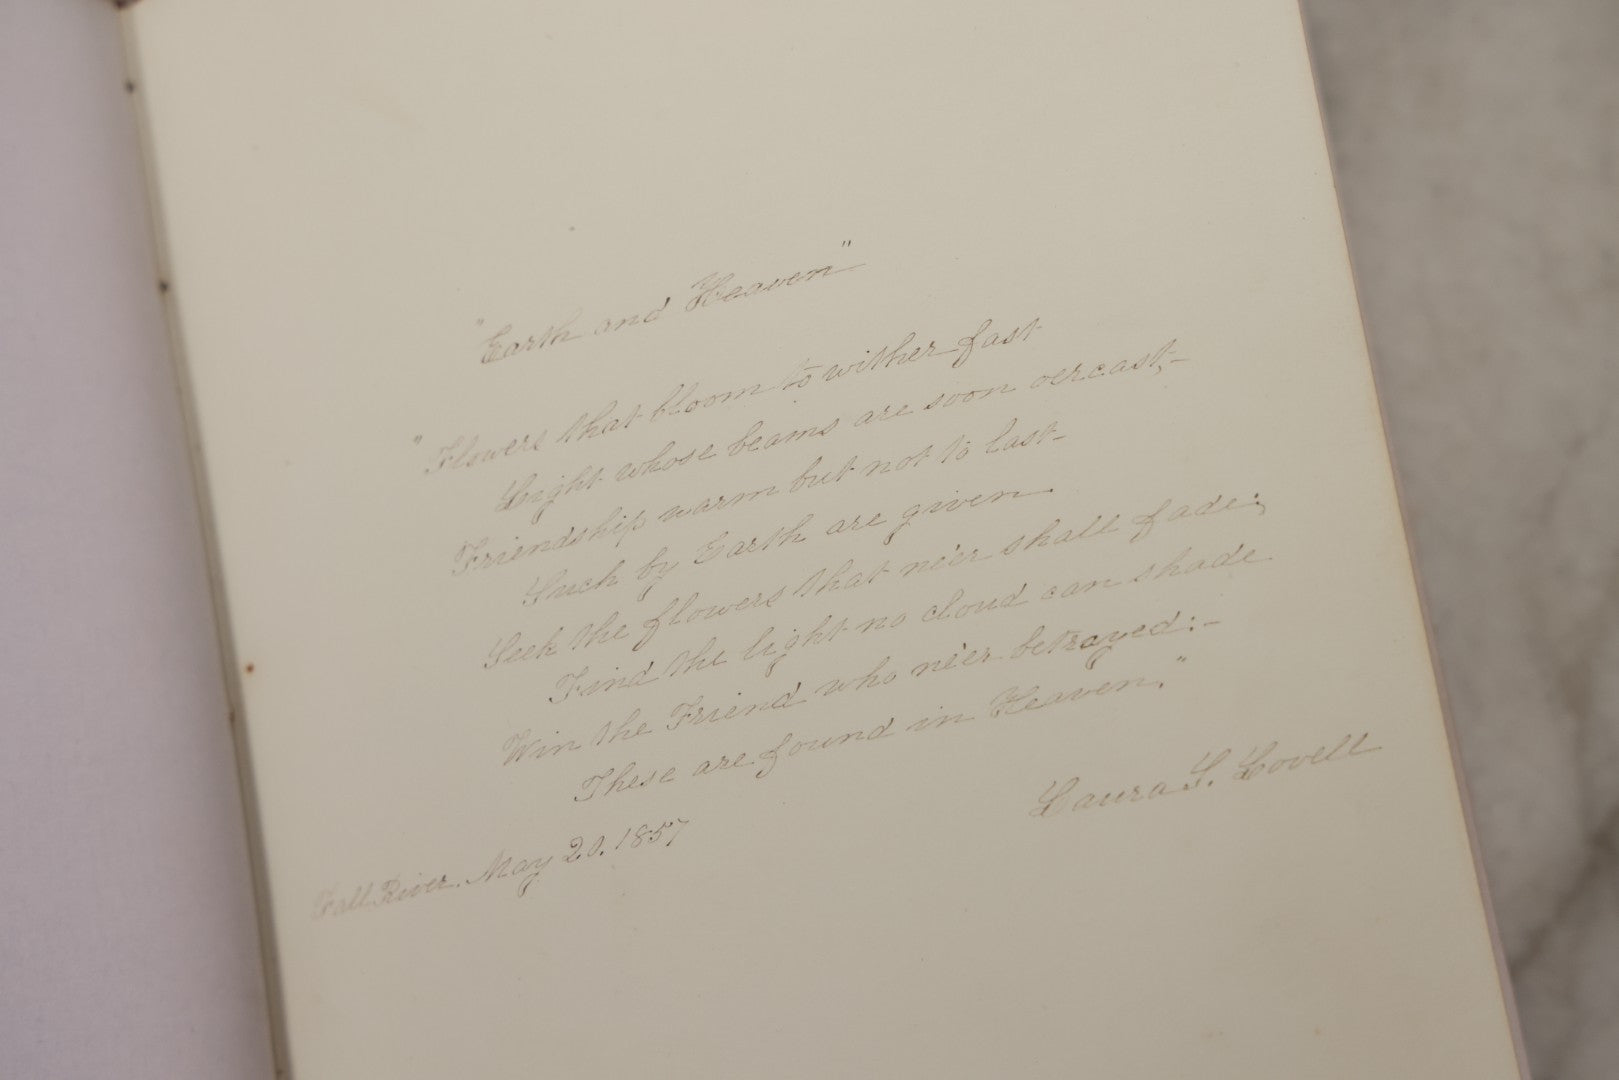 "Earth and Heaven"
"Flowers that bloom to wither fast
Light whose beams are soon oercast,-
Friendship warm but not to last-
Such by Earth are given.
Seek the flowers that ne'er shall fade;
Find the light no cloud can shade
Win the Friend who ne'er betrayed:-
These are found in Heaven."
Laura S. Lovell
Fall River. May 20. 1857